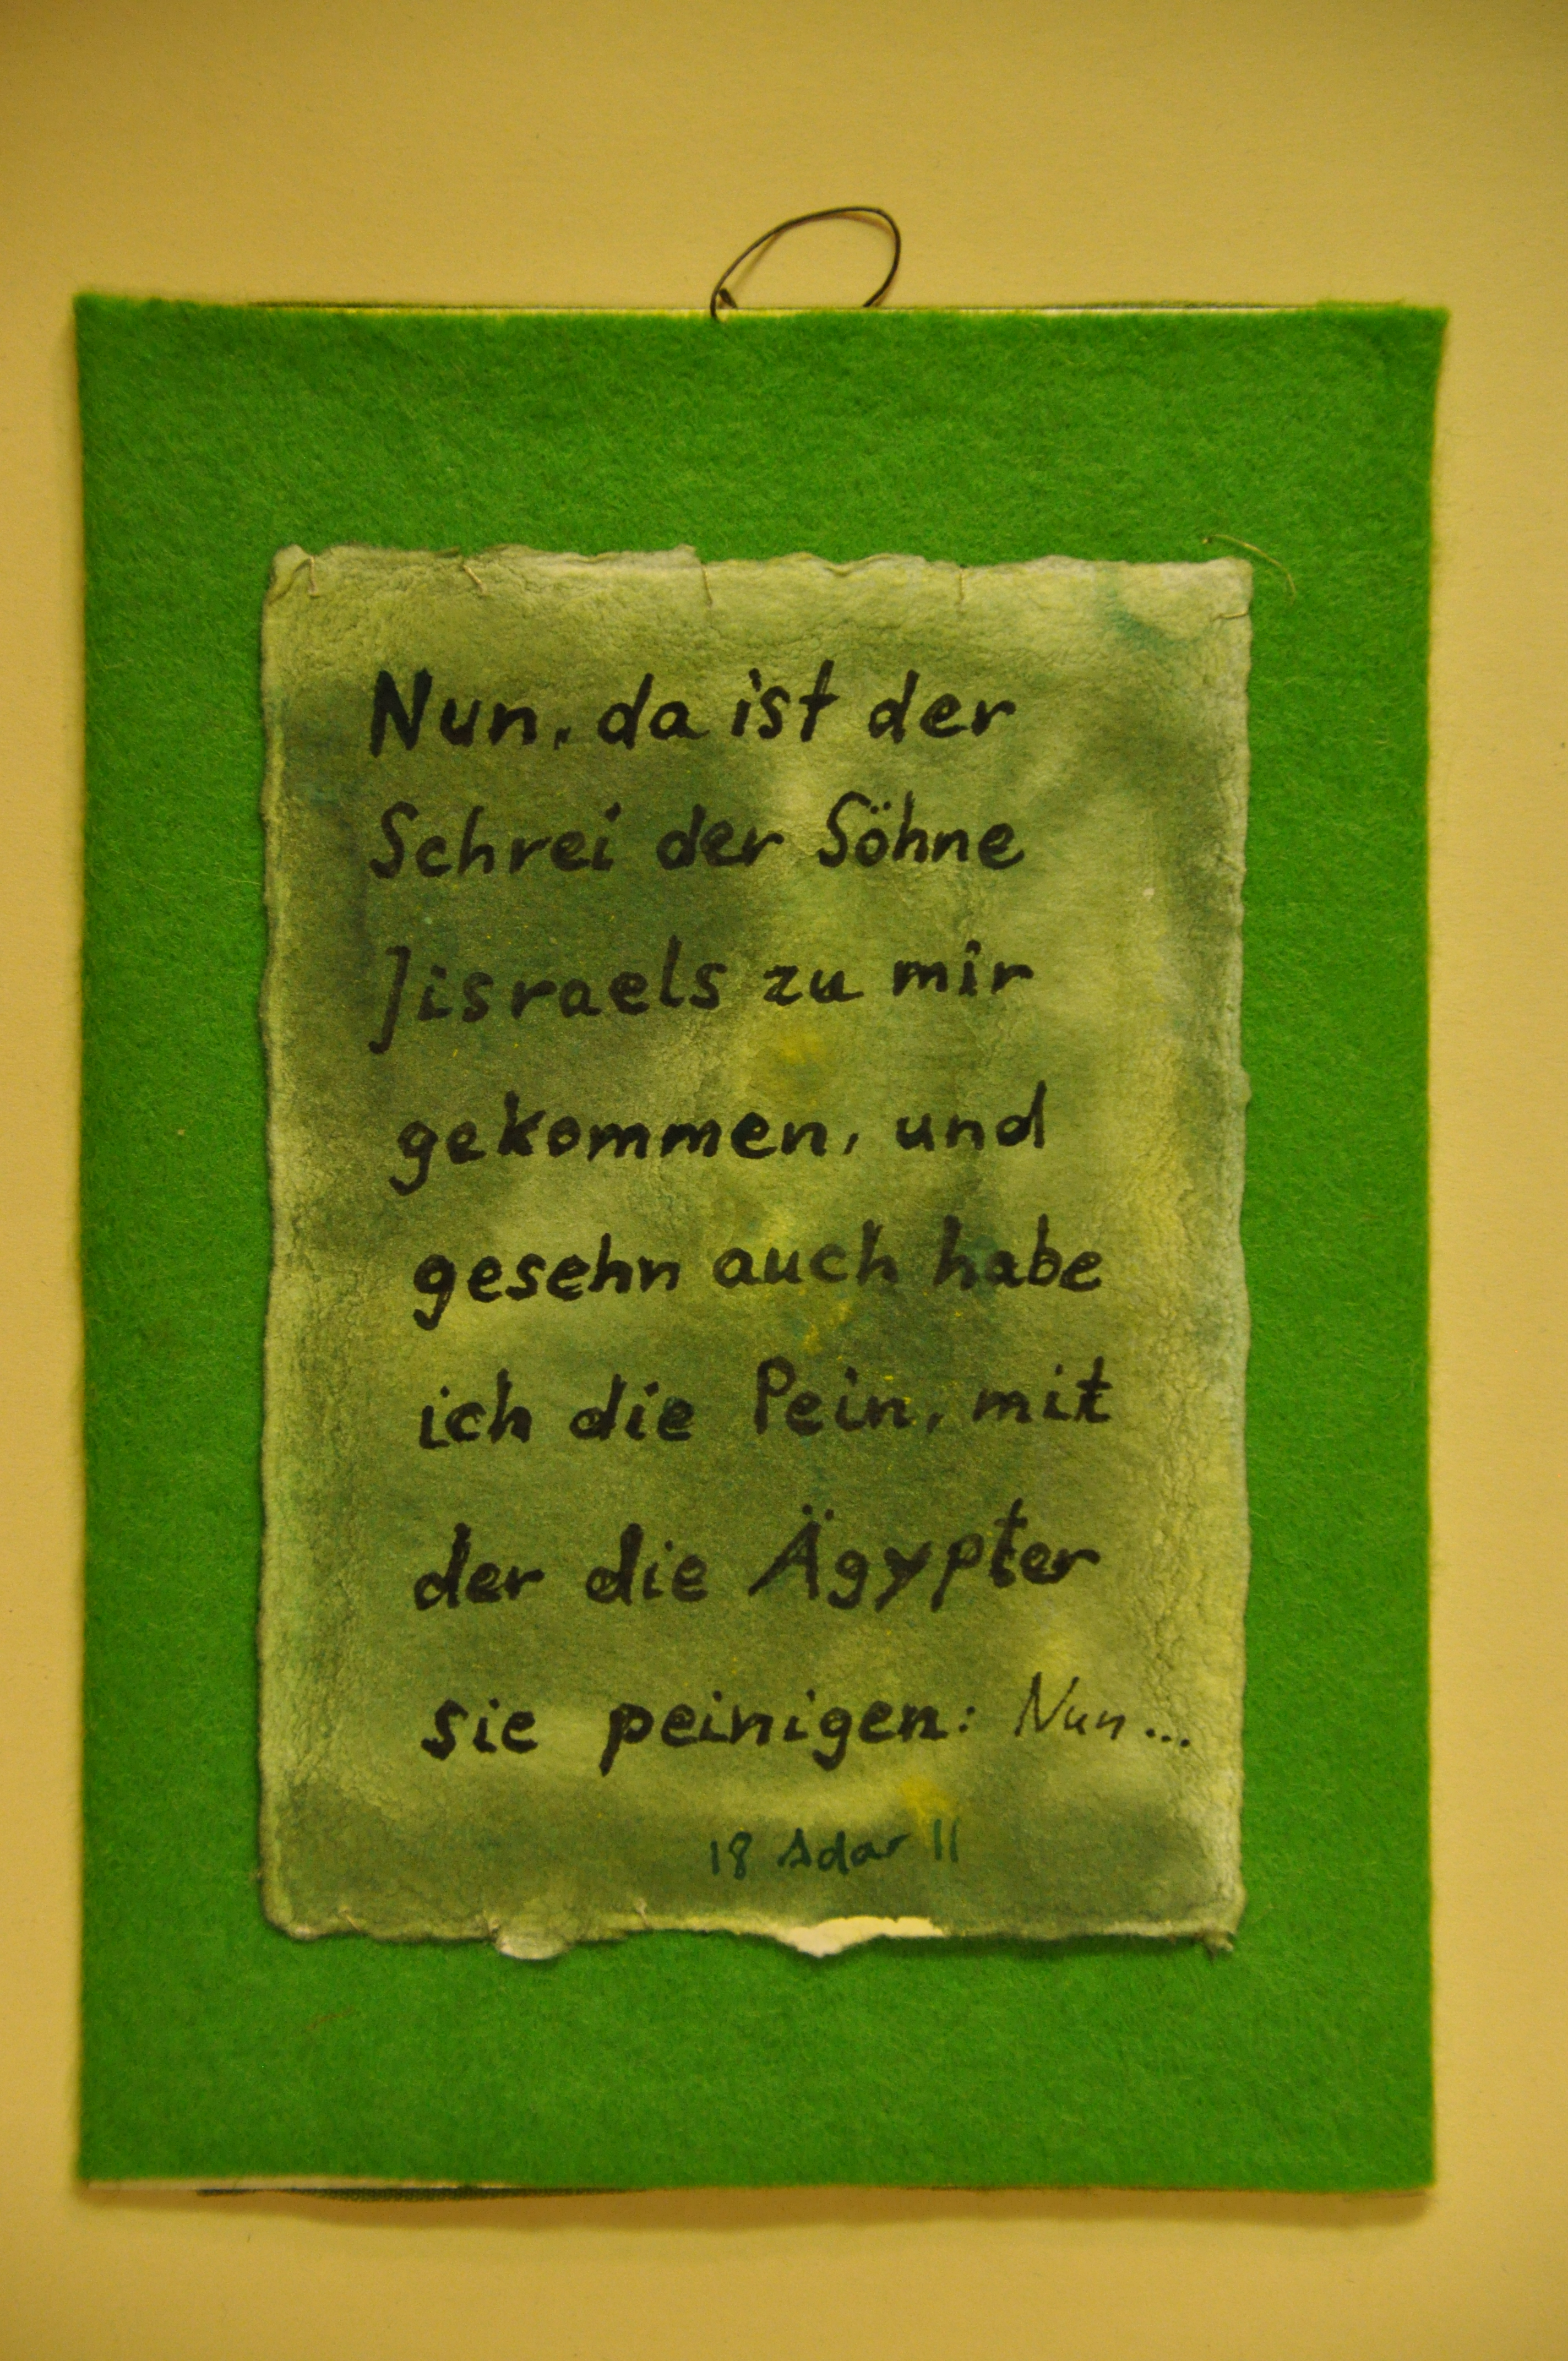 Nun, da ist der
Schrei der Söhne
Jisraels zu mir
gekommen, und
gesehn auch habe
ich die Pein, mit
der die Ägypter
sie peinigen: Nun...
18 Adar II